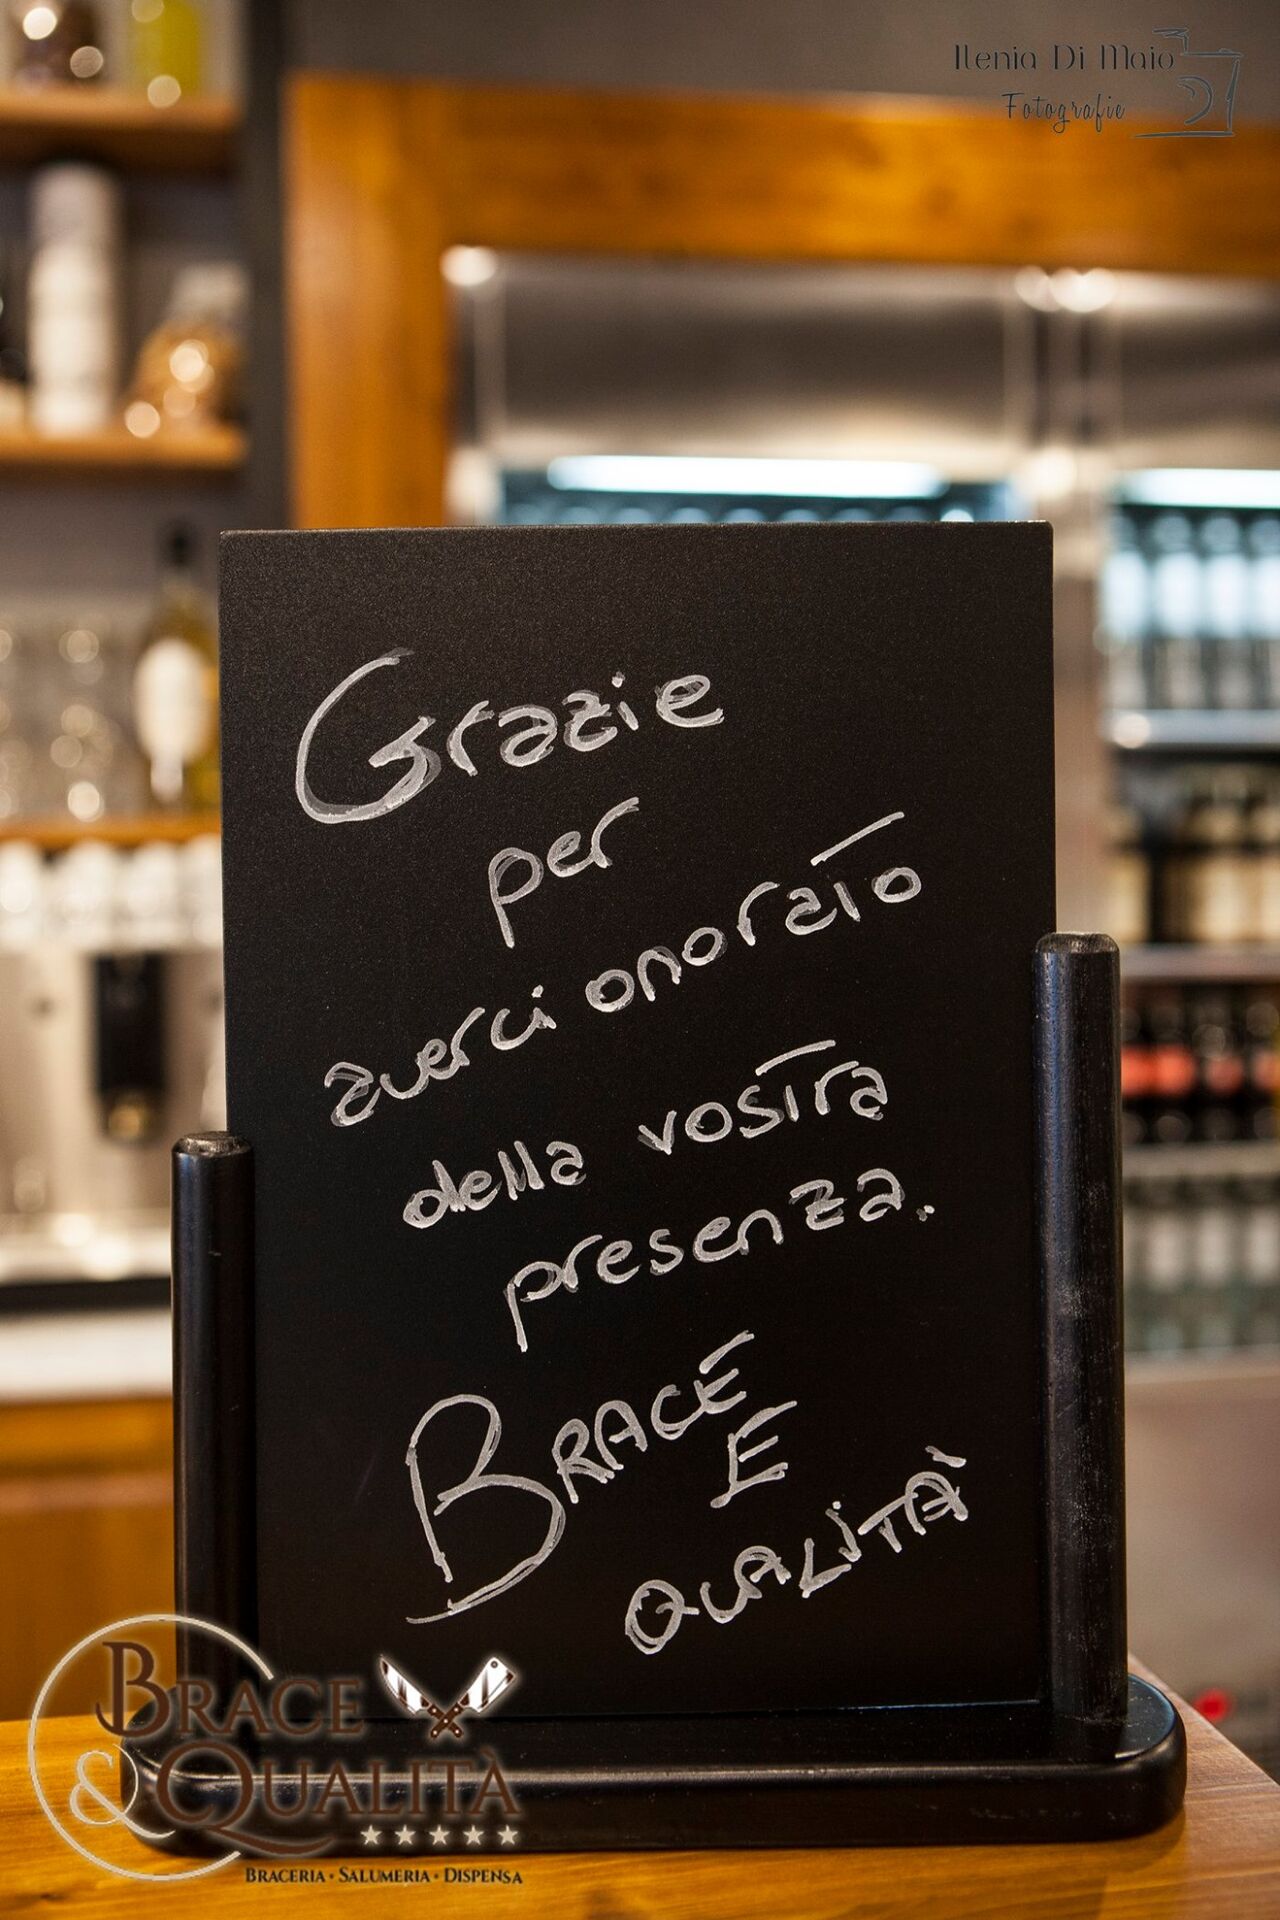 Ilenia Di Maio
Fotografie
Grazie
per
averci onorato
della vostra
presenza.
BRACE
E
QUALITÀ
BRACE
& QUALITÀ
BRACERIA · SALUMERIA · DISPENSA